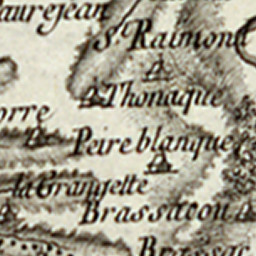 aurejean
St. Raimond
Thonaque
orre
Peire blanque
la Grangette
Brassacou
Brassac